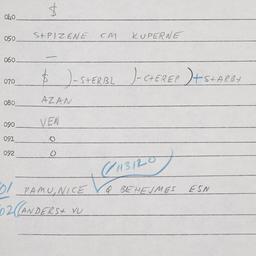 040 $
050 S+PIZENE CM KUPERNE
060 —
070 $ )-S+ERBL )-C+EREP )+S+ARBY
080 AZAN
090 VEN
091 0
092 0
113120
01 PAMU,NICE & BEHEJMES ESN
02 (ANDERS+ VU